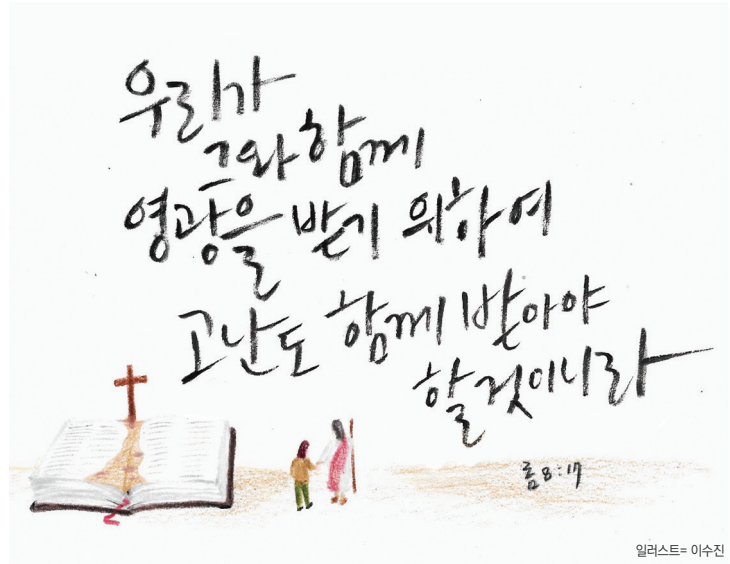 우리가
그와 함께
영광을 받기 위하여
고난도 함께 받아야
할 것이니라
롬 8:17
일러스트= 이수진